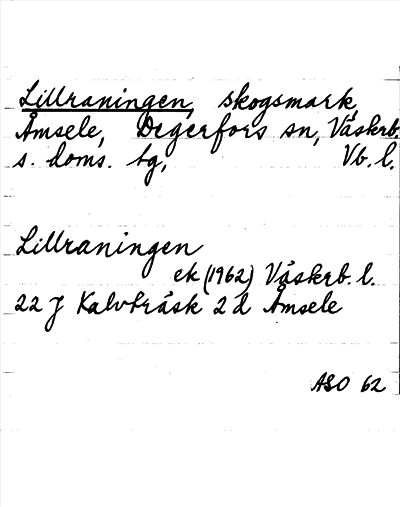 Lillraningen, skogsmark,
Åmsele, Degerfors sn, Väskrb.
s. doms. bg, Vb. l.
Lillraningen
ek (1962) Väskrb. l.
22 J Kalvträsk 2 d Åmsele
ASO 62